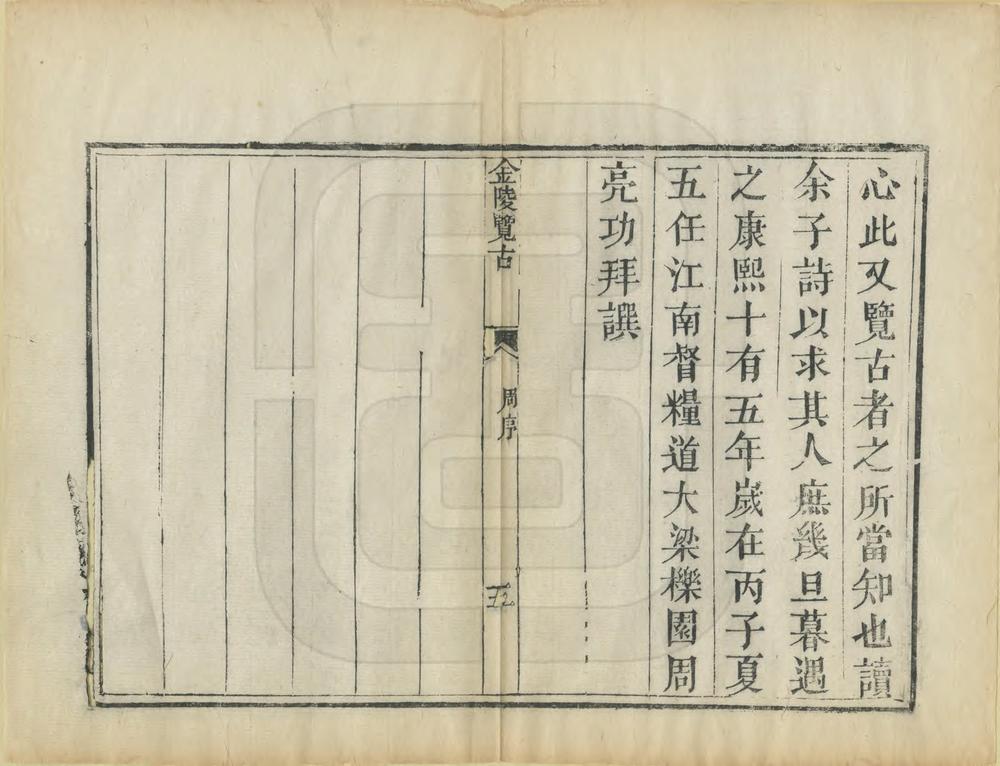 心此又覽古者之所當知也讀
余子詩以求其人庶幾旦暮遇
之康熙十有五年歲在丙子夏
五任江南督糧道大梁櫟園周
亮功拜譔
金陵覽古
周序